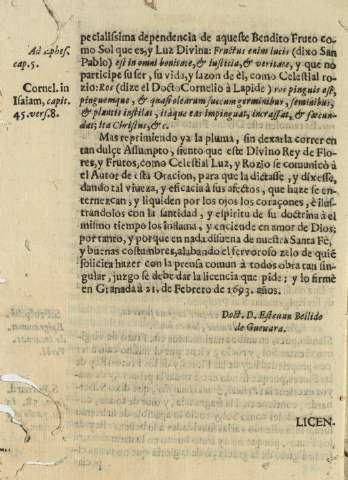 pecialissima dependencia de aqueste Bendito Fruto co-
mo Sol que es, y Luz Divina: Fructus enim lucis (dixo San
Ad ephes. cap. 5.
Pablo) est in omni bonitate, & iustitia, & veritate, y que no
participe su ser, su vida, y sazon de èl, como Celestial ro-
zio: Ros (dize el Docto Cornelio à Lapide) ros pinguis est,
Cornel. in Isaiam, capit. 45. vers. 8.
pinguemque, & quasi olearum succum germinibus, seminibus,
& plantis instilat, itàque eas impinguat, incrassat, & fœcun-
dat; Ita Christus, &c.
Mas reprimiendo ya la pluma, sin dexarla correr en
tan dulçe Assumpto, siento que este Divino Rey de Flo-
res, y Frutos, como Celestial Luz, y Rozio se comunicò à
el Autor de esta Oracion, para que la dictasse, y dixesse,
dando tal viueza, y eficacia à sus afectos, que haze se en-
ternezcan, y liquiden por los ojos los coraçones, è ilus-
trandolos con la santidad, y espiritu de su doctrina à el
mismo tiempo los inflama, y enciende en amor de Dios;
por tanto, y porque en nada disuena de nuestra Santa Fè,
y buenas costumbres, alabando el fervoroso zelo de quiẽ
solicita hazer con la prensa comun à todos obra tan sin-
gular, juzgo se debe dar la licencia que pide; y lo firmè
en Granada à 21. de Febrero de 1693. años.
Doct. D. Estevan Bellido
de Guevara.
LICEN-